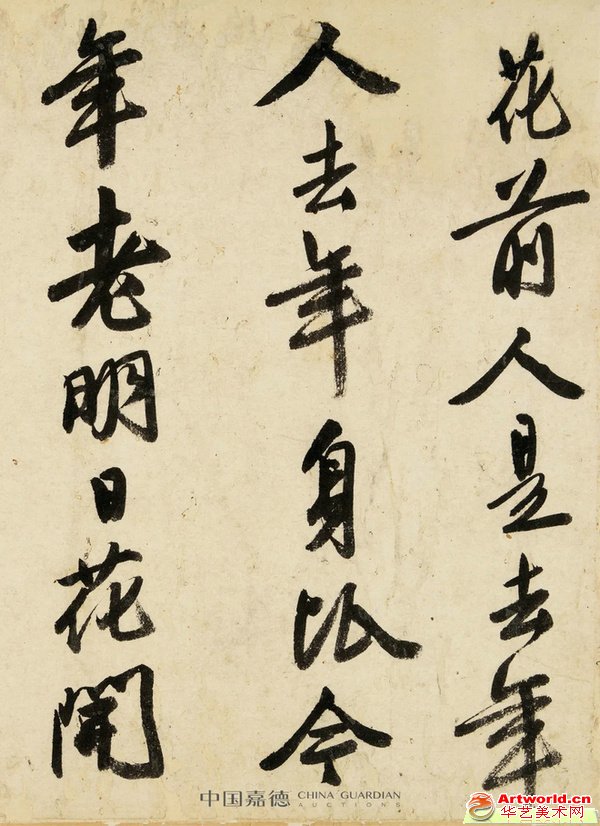 花前人是去年
人去年身比今
年老明日花開
中国嘉德 CHINA GUARDIAN
AUCTIONS
Artworld.cn
华艺美术网